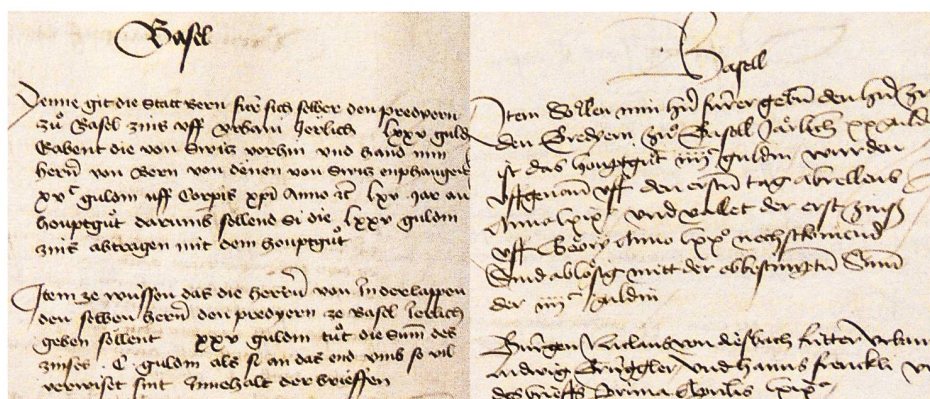 Basel
Denne git die Statt Bern für sich selber den predyern
zů Basel zins uff urbani Jerlich lxxv guld
habent die von Switz vorhin und hand min
herrn von Bern von denen von Switz enphangen
xv c guldin uff Corpis xpi Anno etc lxv Jar an
houptgůt darumb sollend Si die lxxv guldin
zins abtragen mit dem houptgůt
Item ze wüssen das die herrn von Inderlappen
den selben herrn den predyern ze Basel Jerlich
geben sollent xxv guldin tůt die Sum des
zinses C guldin als si an das end umb so vil
verwiset sint Innehalt der brieffen
Basell
Item Söllen min hrn fürer gebn den hrn
den Bredyern zů Basell Järlich xx guld
ist das houptgůt iiii c guldin wurden
uffgenomn uff den ersten tag abrellens
Anno lxix und vallet der erst zinß
uff Geory Anno lxx nechstkomend
Sind ablösig mitt der abbestimptn Sum
der iiii c guldin
Bürgen Niclaus von diesbach
Ludwig Brüggler und hanns frenckli
des brieffs prima Aprilis lxix